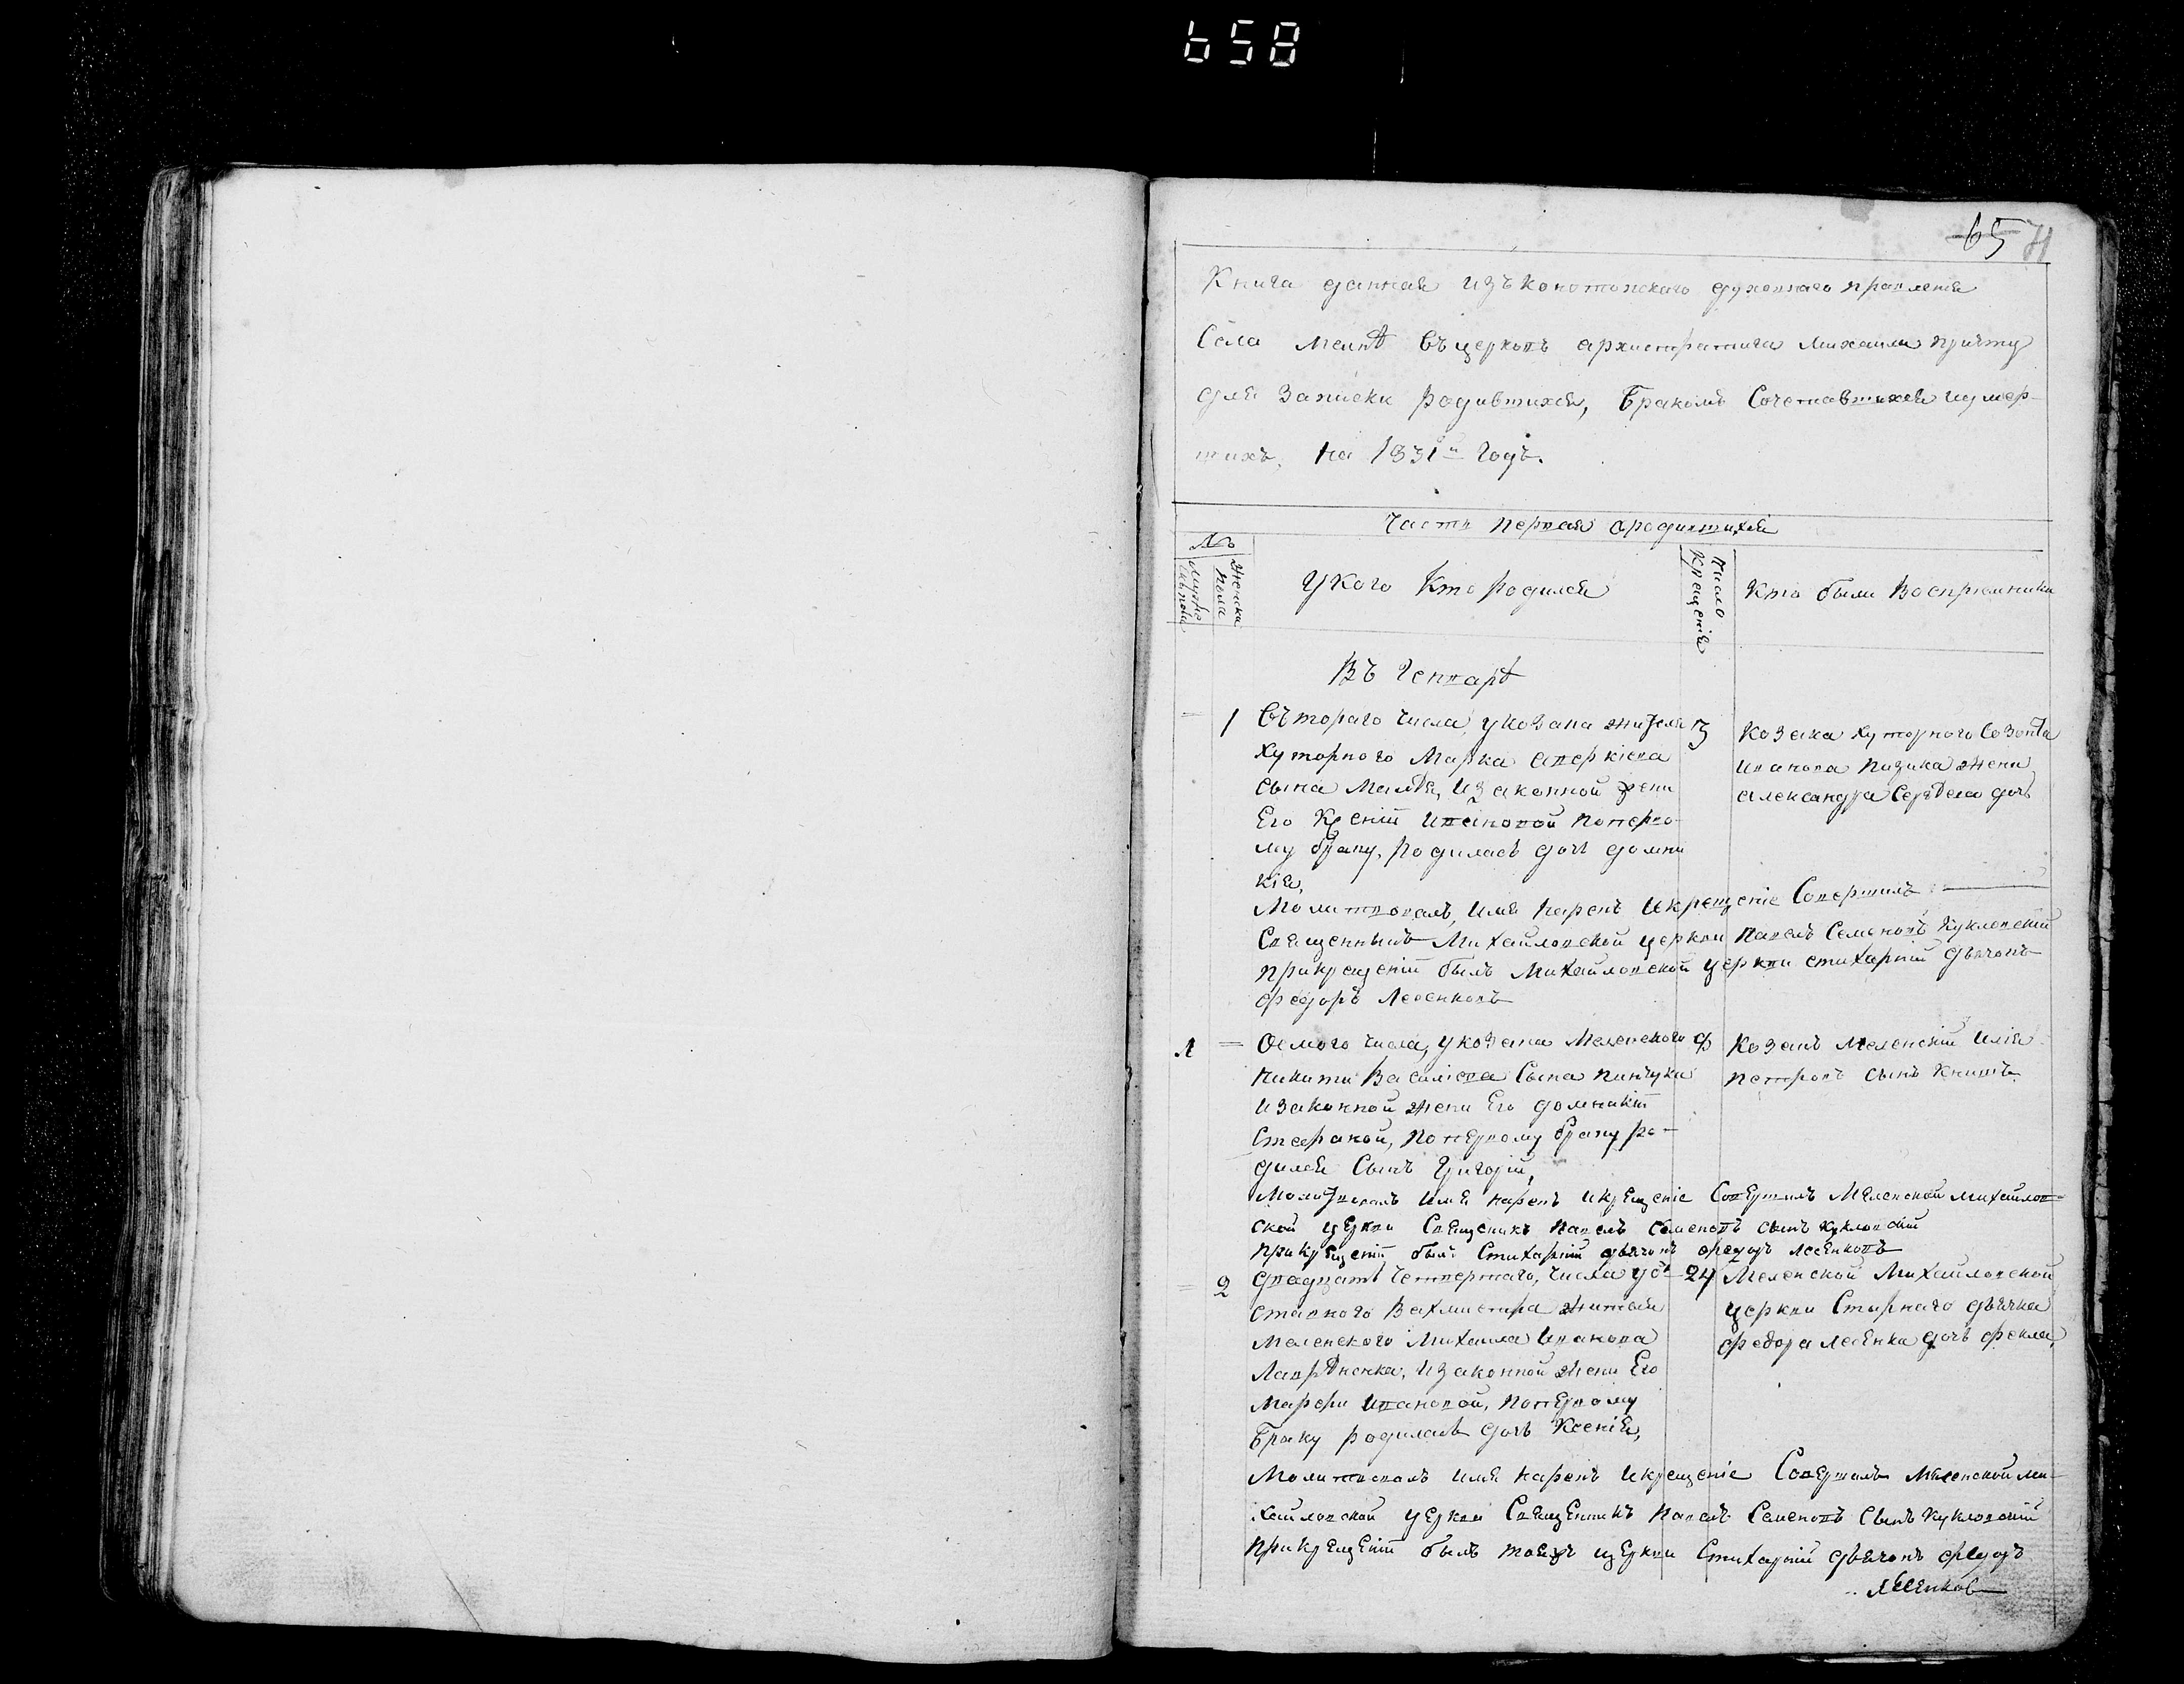 658
65 71
Книга данная изъ конотопскаго духовнаго правленія
Села въ церковъ архистратига Михаила причту
для записки родившихся, браком Сочетавшихся и умер-
шихъ, на 1831й годъ.
Часть первая ородившихся
№
Мужес
Женска
пола
У кого Кто родился
Число
Крещенія
Кто были Восприемники
Въ Генварѣ
1 Второго числа, у козака жителя 3
Хуторного Марка Аверкіева
сына изаконной жени
Его Ксеніи Ивановой поперво-
му браку, родилась дочь домни
кія,
Козака хуторного Созонта
Иванова жена
александра дочь
Молитвовалъ, имя нарекъ икрещеніе Совершилъ
Священникъ Михайловской церкви Павелъ Семеновъ Кукловскій
прикрещеніи былъ Михайловской церкви стихарній дьячокъ
федоръ Лесенковъ
1 Осмого числа, у козака Меленского 9
Никити Василіева Сына Пинчука
изаконной жени Его домникіи
поперпому браку ро-
дился Сынъ Григорій,
Козакъ Меленскій Илія
петровъ сынъ Книшъ
Молитвовалъ имя нарекъ икрещеніе Совершилъ Меленской Михайлов-
ской церкви Священикъ Павелъ Семеновъ сынъ Кукловскій
прикрещеніи былъ Стихарній дьячокъ федоръ Лесенковъ
2 Двадцать четвертаго, числа у от- 24
ставного Вахмистра жителя
Меленского Михаила Иванова
Лаврѣненка, изаконной жени Его
Марфи Ивановой, поперпому
браку родилась дочь Ксенія,
Меленской Михайловской
церкви Стихарнаго дьячка
федора Лесенка дочь фекла,
Молитвовалъ имя нарекъ икрещеніе Совершилъ Меленской ми-
хайловской церкви Священникъ Павелъ Семеновъ Сынъ Кукловскій
прикрещеніи былъ тоеяжъ церкви Стихарній дьячокъ федоръ
Лесенков